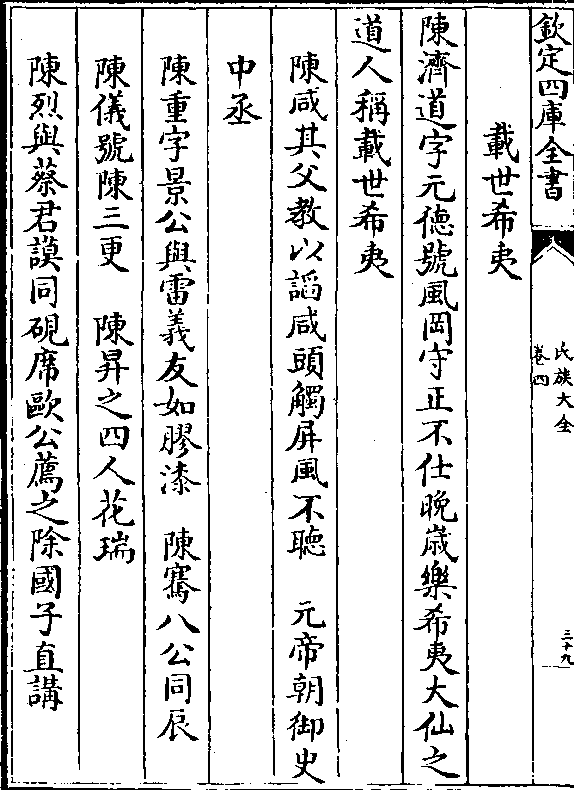 欽定四庫全書
氏族大全
卷四
三十九
載世希夷
陳濟道字元德號風岡守正不仕晚歳樂希夷大仙之
道人稱載世希夷
陳咸其父教以謟咸頭觸屏風不聽　元帝朝御史
中丞
陳重字景公與雷義友如膠漆　陳騫八公同辰
陳儀號陳三更　陳昇之四人花瑞
陳烈與蔡君謨同硯席歐公薦之除國子直講